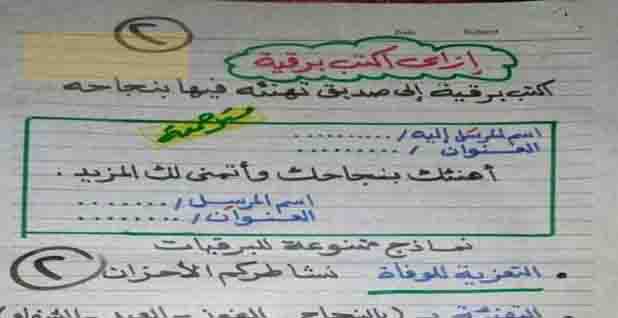 ٢
Date Subject
إزاى اكتب برقية
اكتب برقية إلى صديق تهنئه فيها بنجاحه
اسم المرسل إليه / ..........
العنوان / ..........
أهنئك بنجاحك وأتمنى لك المزيد .
اسم المرسل / ........
العنوان / ........
نماذج متنوعة للبرقيات
• التعزية للوفاة نشاطركم الأحزان ٢